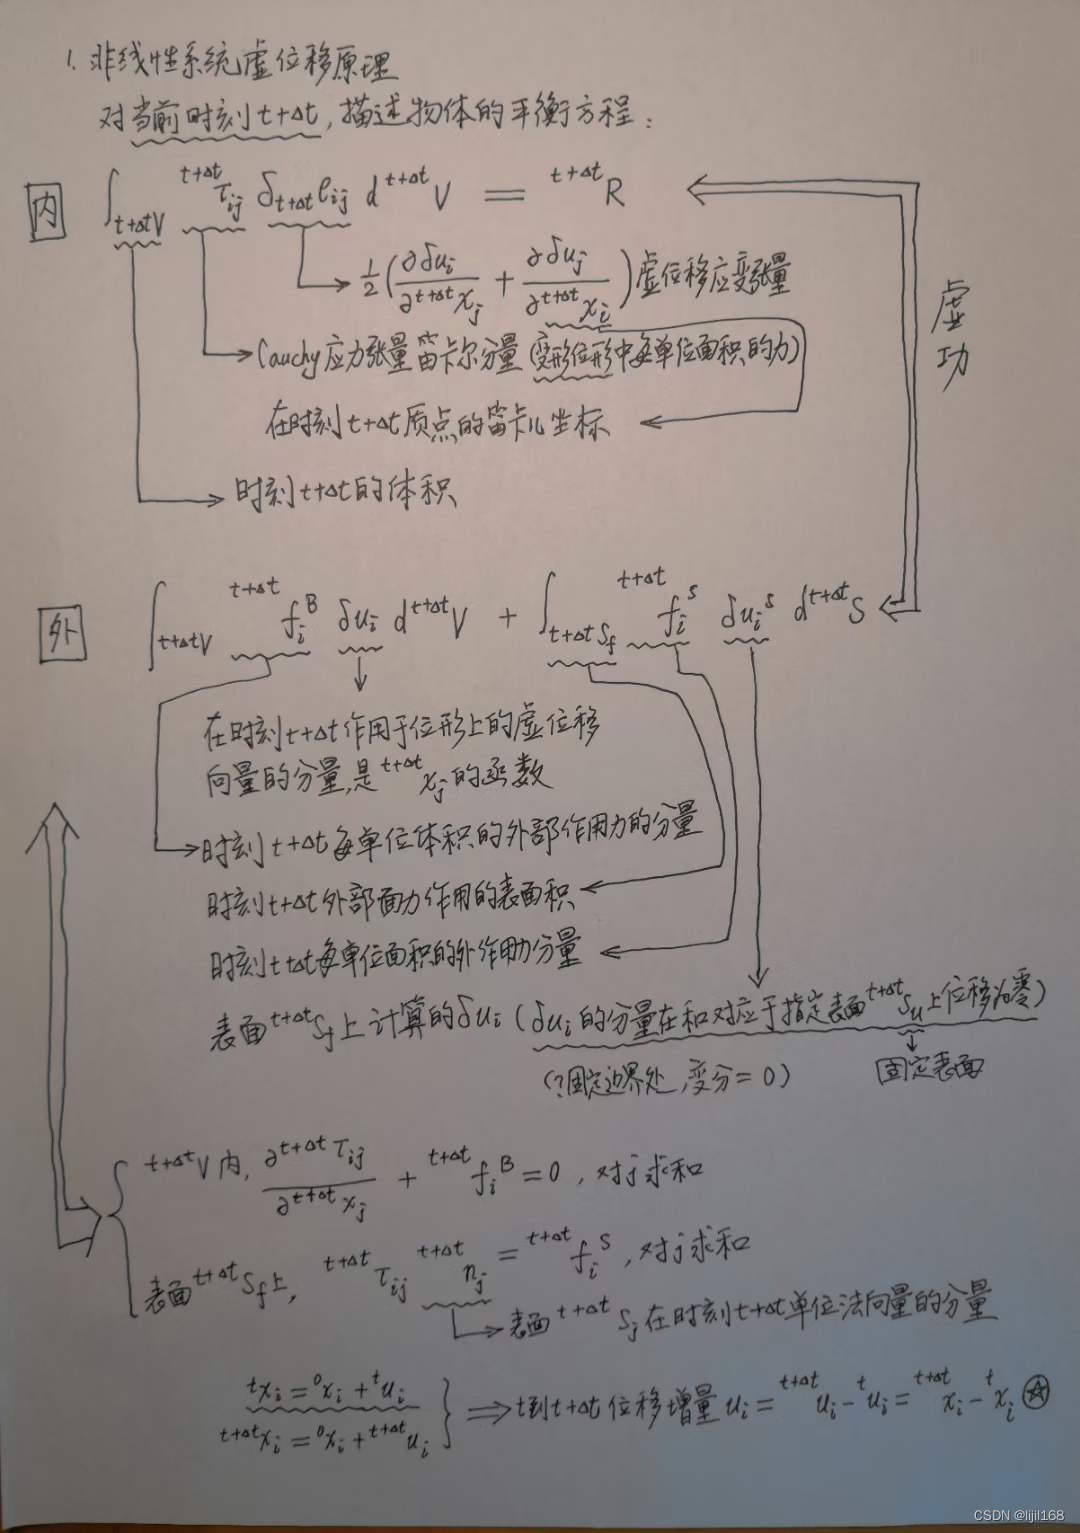 1. 非线性系统虚位移原理
对当前时刻t+Δt,描述物体的平衡方程:
内 ∫_{t+Δt V} ^{t+Δt}τ_{ij} δ_{t+Δt}e_{ij} d^{t+Δt}V = ^{t+Δt}R
1/2(∂δu_i/∂^{t+Δt}x_j + ∂δu_j/∂^{t+Δt}x_i)虚位移应变张量
虚功
Cauchy应力张量笛卡尔分量(变形位形中每单位面积的力)
在时刻t+Δt质点的笛卡儿坐标
时刻t+Δt的体积
外 ∫_{t+Δt V} ^{t+Δt}f_i^B δu_i d^{t+Δt}V + ∫_{t+Δt S_f} ^{t+Δt}f_i^S δu_i^S d^{t+Δt}S
在时刻t+Δt作用于位形上的虚位移
向量的分量,是^{t+Δt}x_j的函数
时刻t+Δt每单位体积的外部作用力的分量
时刻t+Δt外部面力作用的表面积
时刻t+Δt每单位面积的外作用力分量
表面^{t+Δt}S_f上计算的δu_i(δu_i的分量在和对应于指定表面^{t+Δt}S_u上位移为零)
(?固定边界处,变分=0) 固定表面
^{t+Δt}V内, ∂^{t+Δt}τ_{ij}/∂^{t+Δt}x_j + ^{t+Δt}f_i^B = 0,对j求和
表面^{t+Δt}S_f上, ^{t+Δt}τ_{ij} ^{t+Δt}n_j = ^{t+Δt}f_i^S,对j求和
表面^{t+Δt}S_j在时刻t+Δt单位法向量的分量
^t x_i = ^0 x_i + ^t u_i
^{t+Δt}x_i = ^0 x_i + ^{t+Δt}u_i
⇒ t到t+Δt位移增量u_i = ^{t+Δt}u_i - ^t u_i = ^{t+Δt}x_i - ^t x_i ☆
CSDN @lijil168